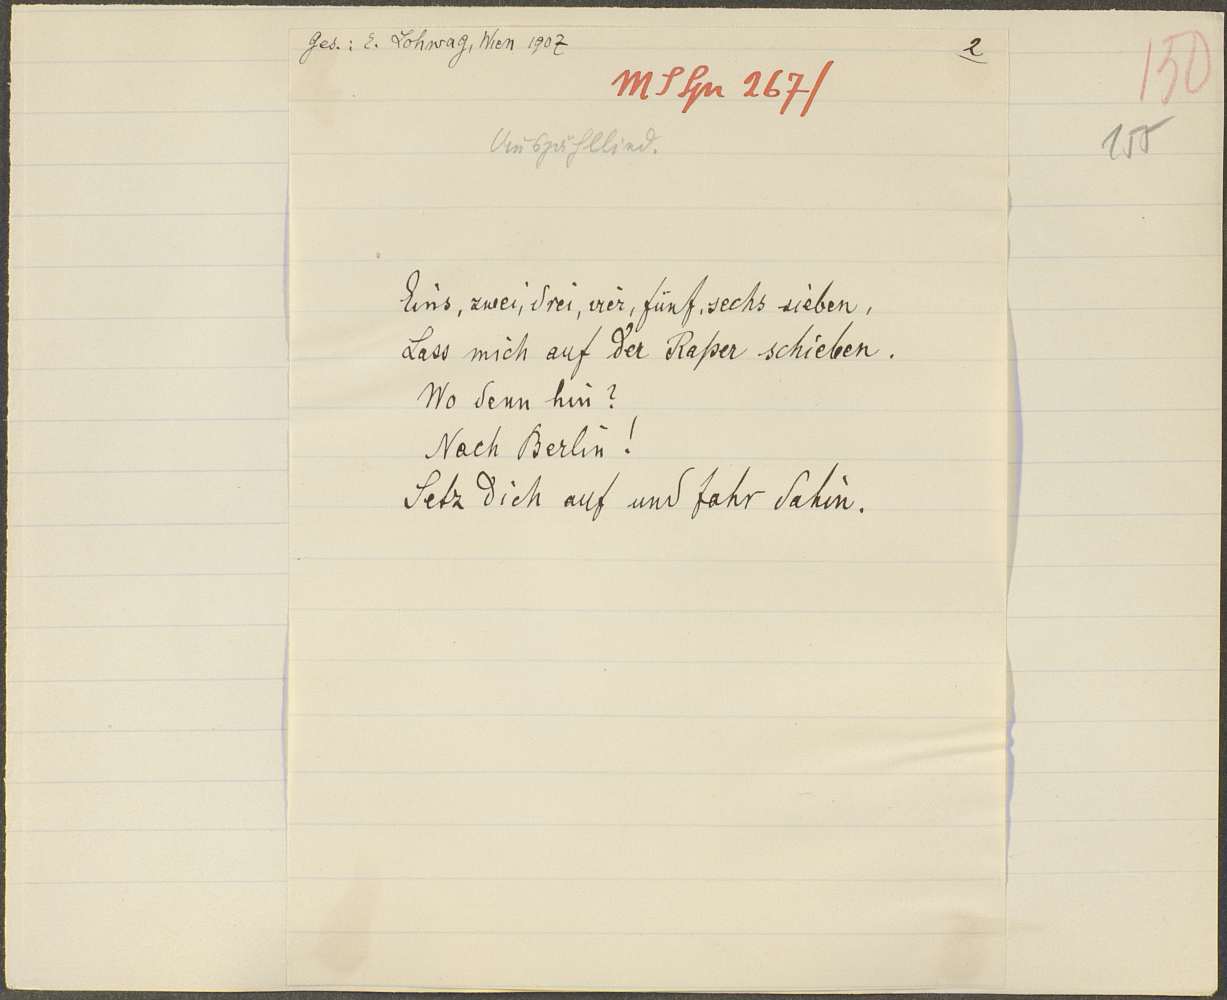 Ges.: E. Lohwag, Wien 1907
2
150
155
Auszähllied.
Eins, zwei, drei, vier, fünf, sechs sieben,
Lass mich auf der Raper schieben.
Wo denn hin?
Nach Berlin!
Setz Dich auf und fahr dahin.